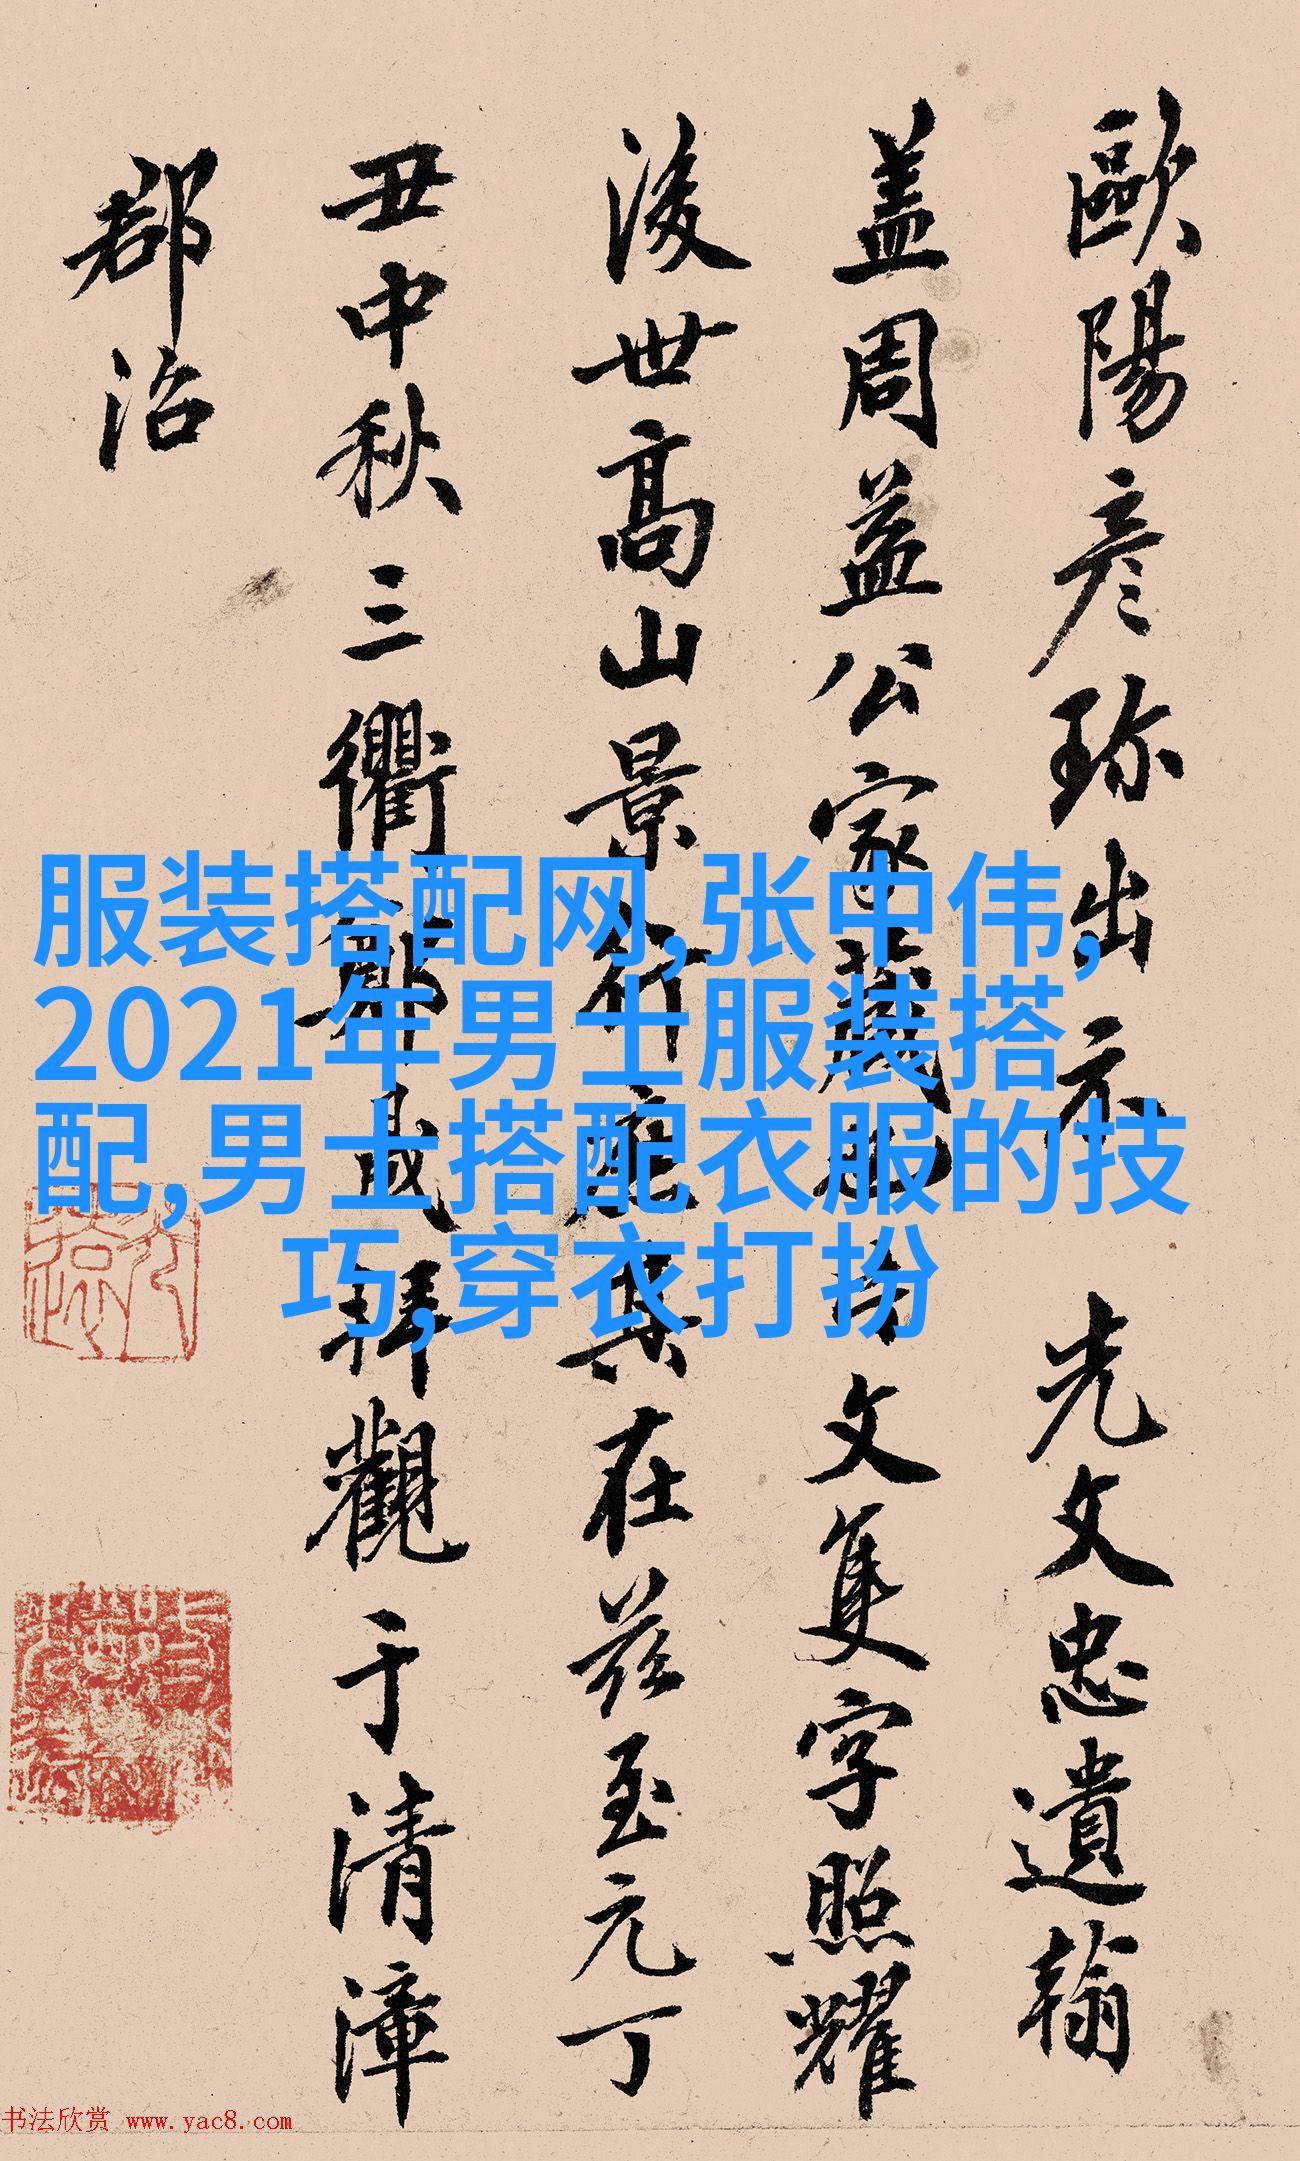 歐陽彦珎出示光文忠遺翰
盖周益公家藏也片文隻字照耀
後世高山景行 其在茲至元丁
丑中秋三衢鄭 拜觀于清漳
郡治
服装搭配网,张中伟,
2021年男士服装搭
配,男士搭配衣服的技
巧,穿衣打扮
书法欣赏 www.yac8.com